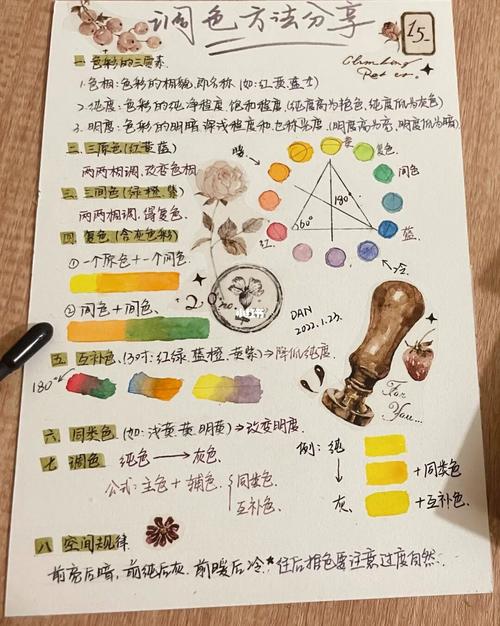 调色方法分享
15
Climbing
Peter.
一 色彩的三要素
1.色相:色彩的相貌,即名称(如:红黄蓝)
2.纯度:色彩的纯净程度.饱和程度(纯度高为艳色,纯度低为灰色)
3.明度:色彩的明暗深浅程度和也称光度.(明度高为亮,明度低为暗)
二.三原色(红黄蓝)
两两相调,改变色相
三.三间色(绿橙.紫)
两两相调.得复色.
四.复色(含灰色彩)
①一个原色+一个间色.
②间色+间色、
暖.
黄
复色.
间色
180°
60°
红.
蓝.
冷.
小红书
DAN
2022.1.23.
五 互补色.(对:红绿.蓝橙.黄紫)→降低纯度.
180°
For
You...
六.同类色(如:浅黄.黄.明黄)→改变明度.
七.调色 纯色→灰色.
公式:主色+辅色.{同类色.
互补色.
例:纯
+同类色
灰.
+互补色.
八 空间规律
前亮后暗,前纯后灰.前暖后冷*往后相色要注意过度自然.